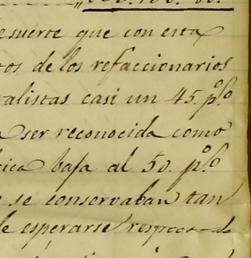 esuerte que con esta
tos de los refaccionarios
talistas casi un 45. p%
a ser reconocida como
rica baja al 50. p%
e se conservaban tan
de esperarse respecto de